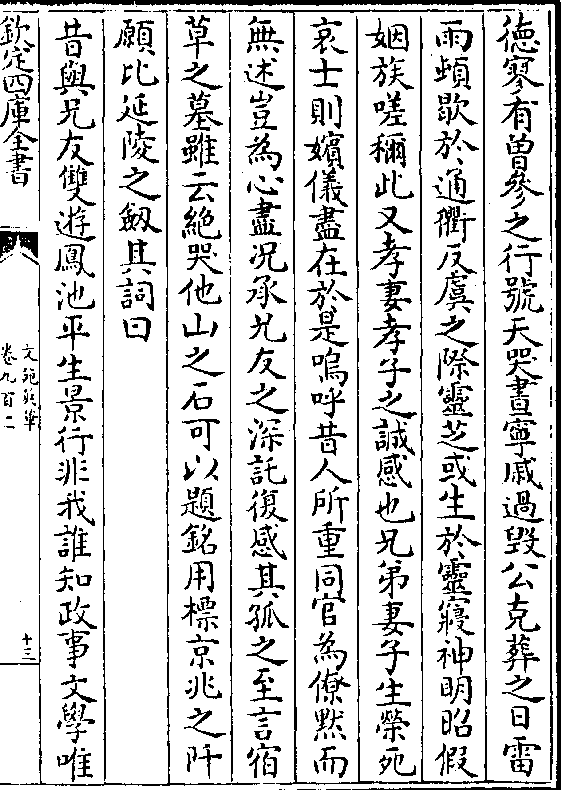 德寥有曽參之行號天哭晝寧戚過毀公克葬之日雷
雨頓歇於通衢反虞之際靈芝或生於靈寢神明昭假
姻族嗟稱此又孝妻孝子之誠感也兄弟妻子生榮死
哀士則嬪儀盡在於是嗚呼昔人所重同官為僚黙而
無述豈為心盡况承兄友之深託復感其孤之至言宿
草之墓雖云絶哭他山之石可以題銘用標京兆之阡
願比延陵之劔其詞曰
昔與兄友雙遊鳳池平生景行非我誰知政事文學唯
欽定四庫全書
文苑英華
卷九百二
十三